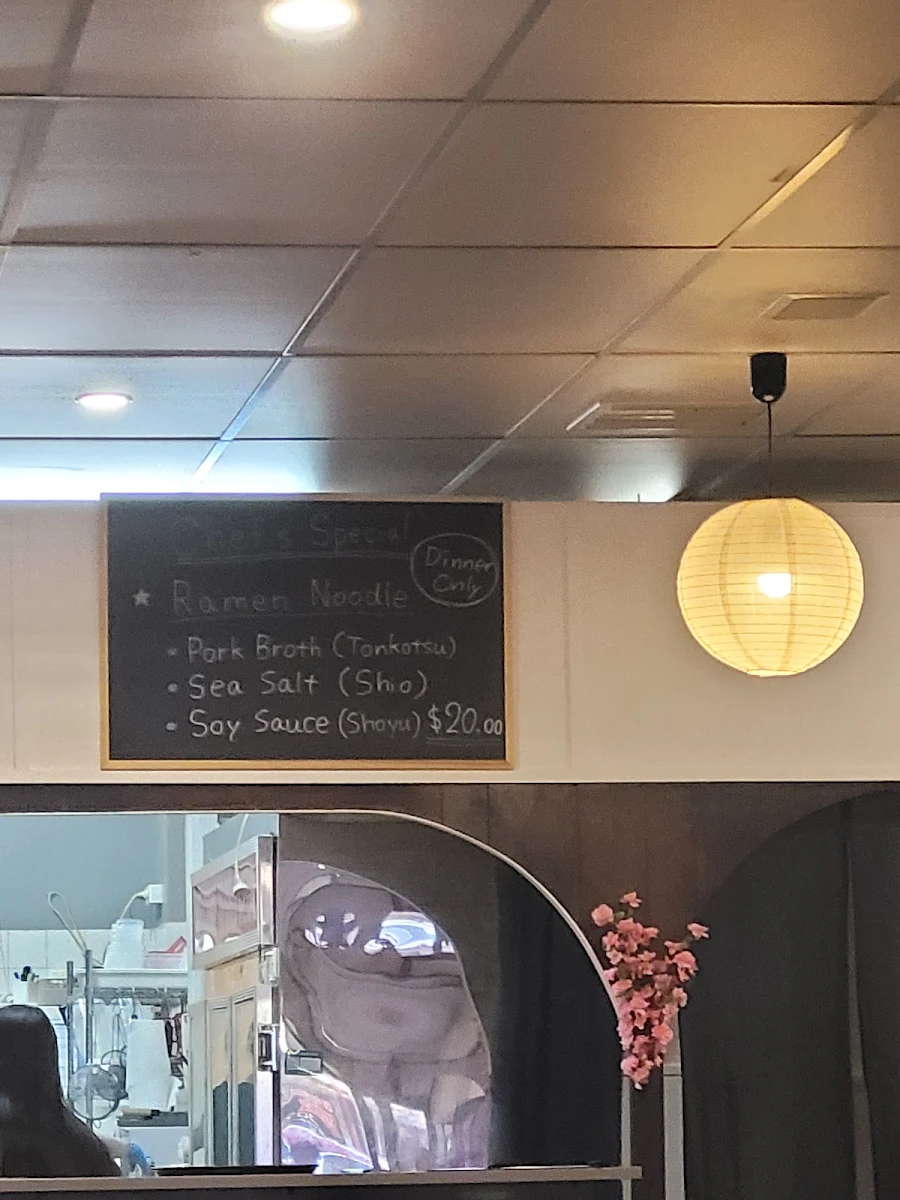 Chef's Special
Dinner
Only
★ Ramen Noodle
• Pork Broth (Tonkotsu)
• Sea Salt (Shio)
• Soy Sauce (Shoyu) $20.00